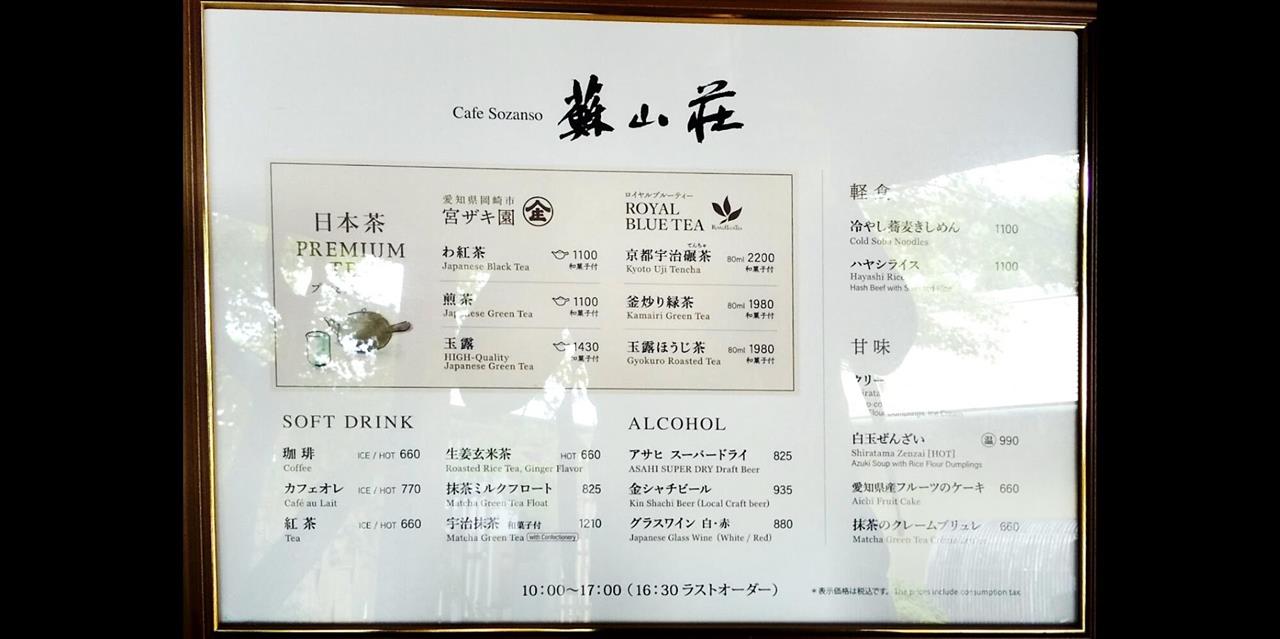 Cafe Sozanso 蘇山荘
日本茶
PREMIUM
愛知県岡崎市
宮ザキ園
わ紅茶 1100
Japanese Black Tea 和菓子付
煎茶 1100
Japanese Green Tea 和菓子付
玉露 1430
HIGH-Quality 和菓子付
Japanese Green Tea
ロイヤルブルーティー
ROYAL
BLUE TEA
てんちゃ
京都宇治碾茶 80ml 2200
Kyoto Uji Tencha 和菓子付
釜炒り緑茶 80ml 1980
Kamairi Green Tea 和菓子付
玉露ほうじ茶 80ml 1980
Gyokuro Roasted Tea 和菓子付
SOFT DRINK
珈琲 ICE / HOT 660
Coffee
カフェオレ ICE / HOT 770
Café au Lait
紅茶 ICE / HOT 660
Tea
生姜玄米茶 HOT 660
Roasted Rice Tea, Ginger Flavor
抹茶ミルクフロート 825
Matcha Green Tea Float
宇治抹茶 和菓子付 1210
Matcha Green Tea with Confectionery
ALCOHOL
アサヒ スーパードライ 825
ASAHI SUPER DRY Draft Beer
金シャチビール 935
Kin Shachi Beer (Local Craft beer)
グラスワイン 白・赤 880
Japanese Glass Wine (White / Red)
軽食
冷やし蕎麦きしめん 1100
Cold Soba Noodles
ハヤシライス 1100
Hayashi Rice
Hash Beef with
甘味
クリー
Flour Dumplings, Ice Cream
白玉ぜんざい 温 990
Shiratama Zenzai [HOT]
Azuki Soup with Rice Flour Dumplings
愛知県産フルーツのケーキ 660
Aichi Fruit Cake
抹茶のクレームブリュレ 660
Matcha Green Tea
10:00〜17:00（16:30 ラストオーダー）
＊表示価格は税込です。 The prices include consumption tax